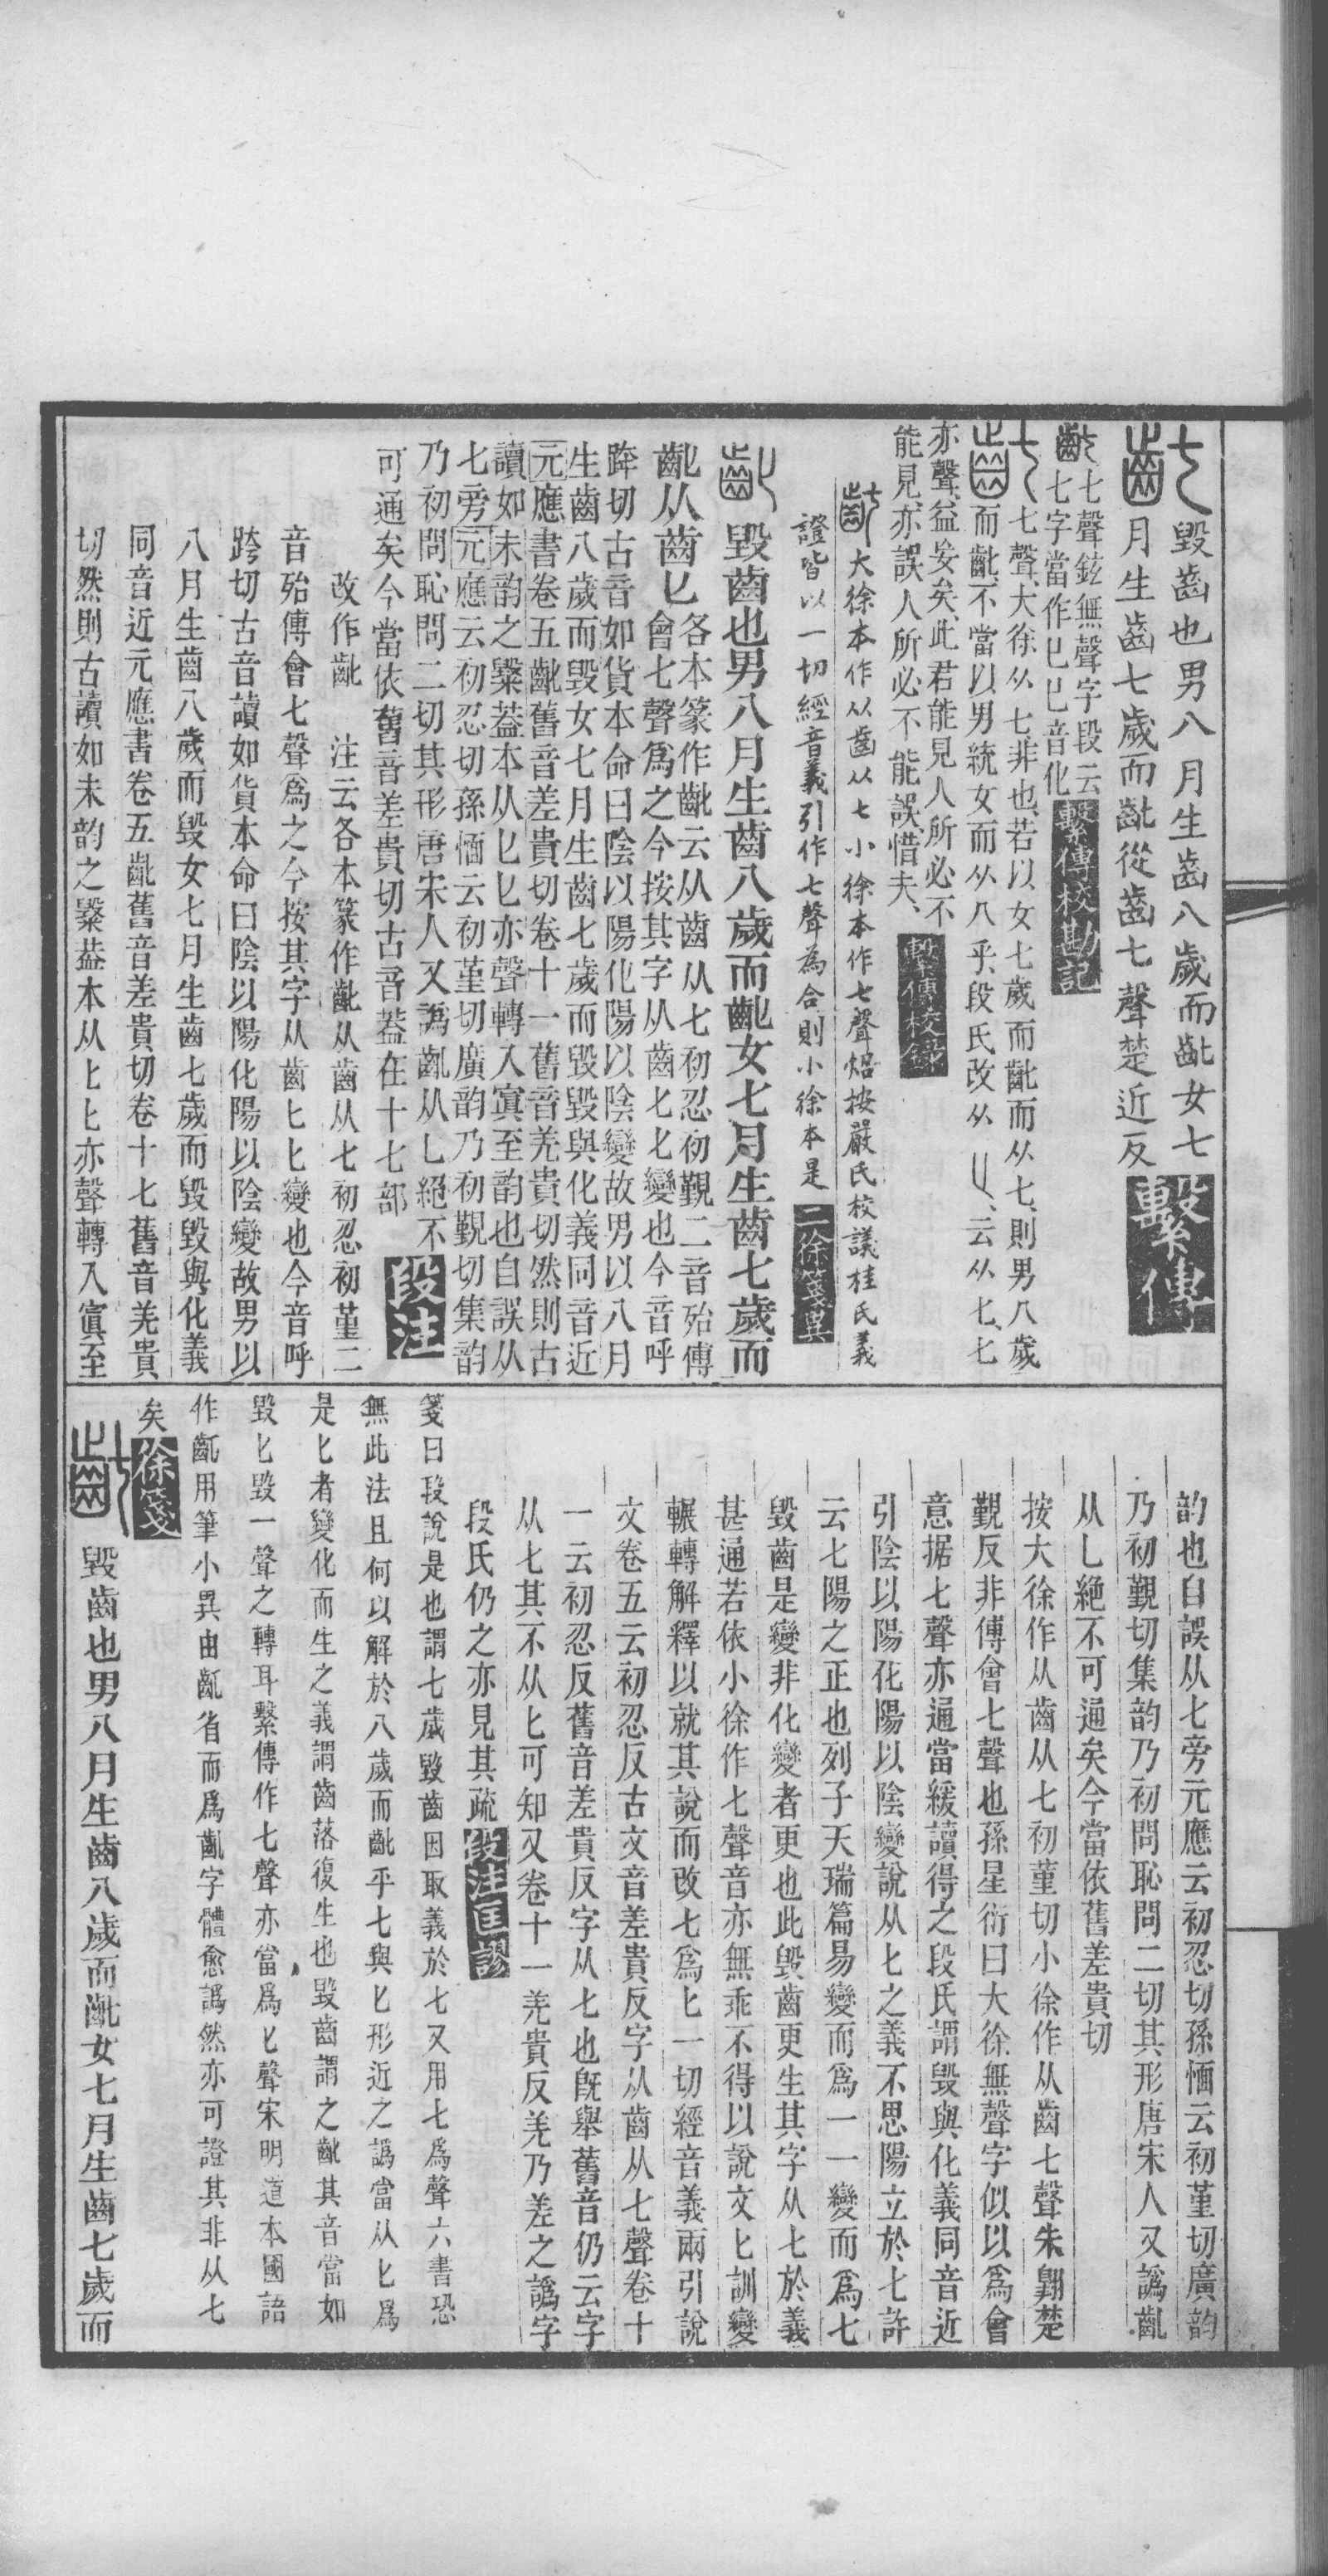 毀齒也男八月生齒八歲而齔女七
月生齒七歲而齔從齒七聲楚近反
繫傳
七聲鉉無聲字段云
七字當作匕匕音化
繫傳校勘記
七聲、大徐从七、非也、若以女七歲而齔而从七、則男八歲
而齔、不當以男統女而从八乎、段氏改从匕、云从七、七
亦聲、益妄矣、此君能見人所必不
能見、亦誤人所必不能誤、惜夫、
繫傳校錄
大徐本作从齒从七小徐本作七聲焙按嚴氏校議桂氏義
證皆以一切經音義引作七聲為合則小徐本是
二徐箋異
毀齒也男八月生齒八歲而齔女七月生齒七歲而
齔从齒匕
各本篆作齔云从齒从七初忍初覲二音殆傳
會七聲爲之今按其字从齒匕匕變也今音呼
跨切古音如貨本命曰陰以陽化陽以陰變故男以八月
生齒八歲而毀女七月生齒七歲而毀毀與化義同音近
元應書卷五齔舊音差貴切卷十一舊音羌貴切然則古
讀如未韵之䊠葢本从匕匕亦聲轉入寘至韵也自誤从
七旁元應云初忍切孫愐云初堇切廣韵乃初覲切集韵
乃初問恥問二切其形唐宋人又譌齓从乚絕不
可通矣今當依舊音差貴切古音葢在十七部
段注
改作齔 注云各本篆作齔从齒从七初忍初堇二
音殆傳會七聲爲之今按其字从齒匕匕變也今音呼
跨切古音讀如貨本命曰陰以陽化陽以陰變故男以
八月生齒八歲而毀女七月生齒七歲而毀毀與化義
同音近元應書卷五齔舊音差貴切卷十七舊音羌貴
切然則古讀如未韵之䊠葢本从匕匕亦聲轉入寘至
韵也自誤从七旁元應云初忍切孫愐云初堇切廣韵
乃初覲切集韵乃初問恥問二切其形唐宋人又譌齓
从乚絕不可通矣今當依舊差貴切
按大徐作从齒从七初堇切小徐作从齒七聲朱翺楚
覲反非傅會七聲也孫星衍曰大徐無聲字似以爲會
意据七聲亦通當緩讀得之段氏謂毀與化義同音近
引陰以陽化陽以陰變說从匕之義不思陽立於七許
云七陽之正也列子天瑞篇易變而爲一一變而爲七
毀齒是變非化變者更也此毀齒更生其字从七於義
甚通若依小徐作七聲音亦無乖不得以說文匕訓變
輾轉解釋以就其說而改七爲匕一切經音義兩引說
文卷五云初忍反古文音差貴反字从齒从七聲卷十
一云初忍反舊音差貴反字从七也旣舉舊音仍云字
从七其不从匕可知又卷十一羌貴反羌乃差之譌字
段氏仍之亦見其疏
段注匡謬
箋曰段說是也謂七歲毀齒因取義於七又用七爲聲六書恐
無此法且何以解於八歲而齔乎七與匕形近之譌當从匕爲
是匕者變化而生之義謂齒落復生也毀齒謂之齔其音當如
毀匕毀一聲之轉耳繫傳作七聲亦當爲匕聲宋明道本國語
作齓用筆小異由齓省而爲齓字體愈譌然亦可證其非从七
矣
徐箋
毀齒也男八月生齒八歲而齔女七月生齒七歲而